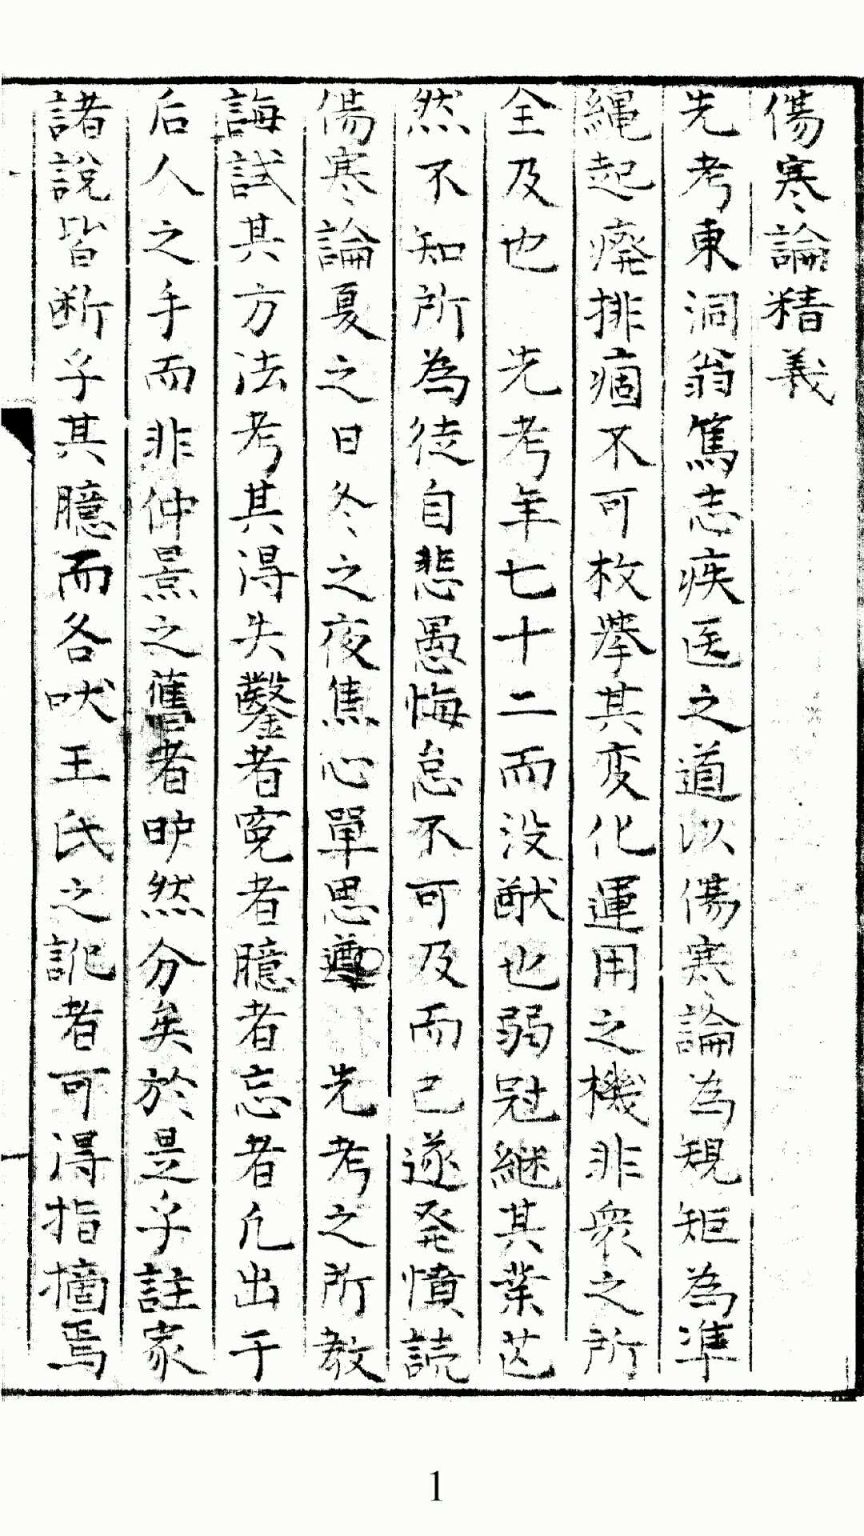 傷寒論精義
先考東洞翁篤志疾医之道以傷寒論為規矩為準
縄起癈排痼不可枚挙其变化運用之機非衆之所
全及也　先考年七十二而没猷也弱冠継其業茫
然不知所為徒自悲愚悔怠不可及而已遂発憤読
傷寒論夏之日冬之夜焦心單思遵　先考之所教
誨試其方法考其得失鑿者寃者臆者忘者凢出于
后人之手而非仲景之舊者昈然分矣於是乎註家
諸說皆断乎其臆而各吠王氏之訛者可得指摘焉
1